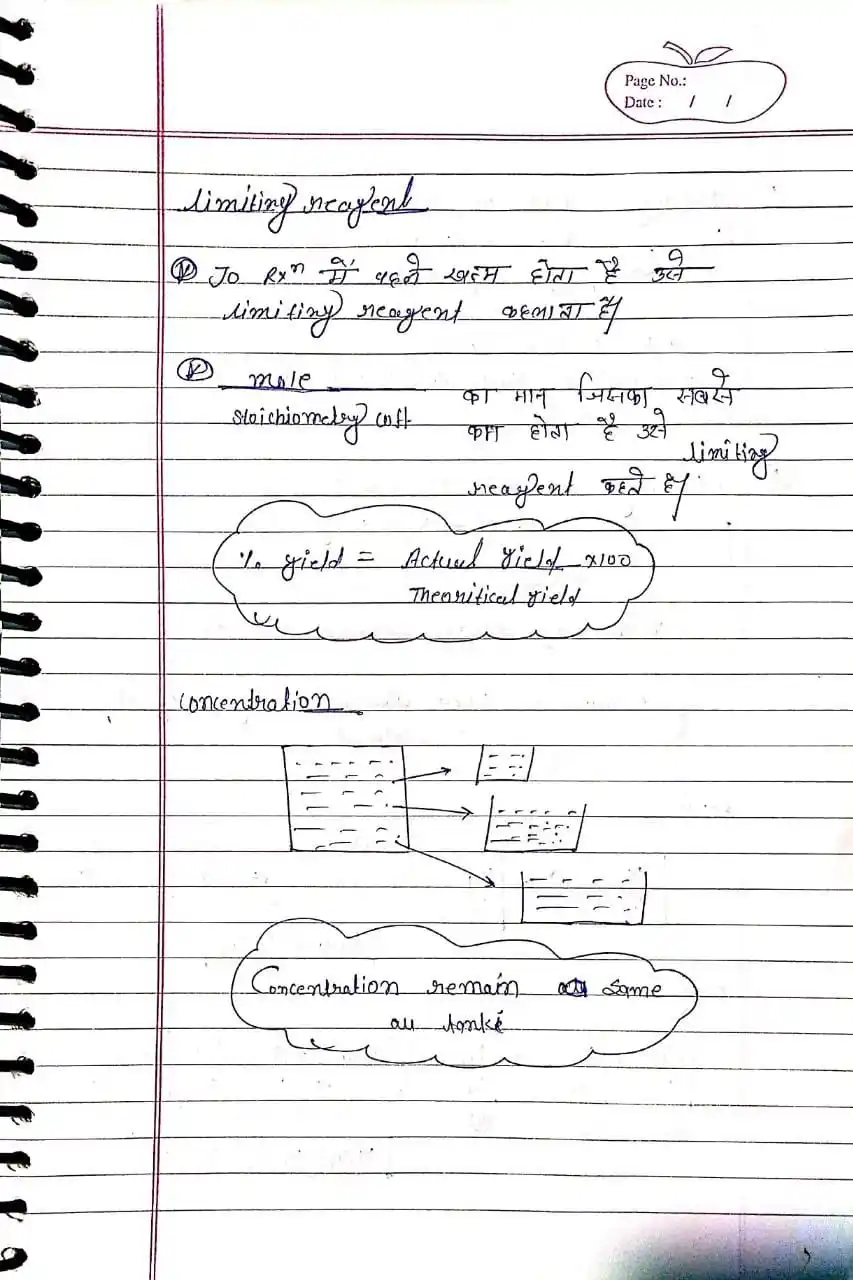 Page No.:
Date : / /
Limiting reagent
Jo Rxⁿ में पहले खत्म होता है उसे
limiting reagent कहलाता है।
mole
stoichiometry coff. का मान जिसका सबसे
कम होता है उसे limiting
reagent कहते है।
% yield = Actual yield ×100
Theoritical yield
Concentration
Concentration remain same
all tanke